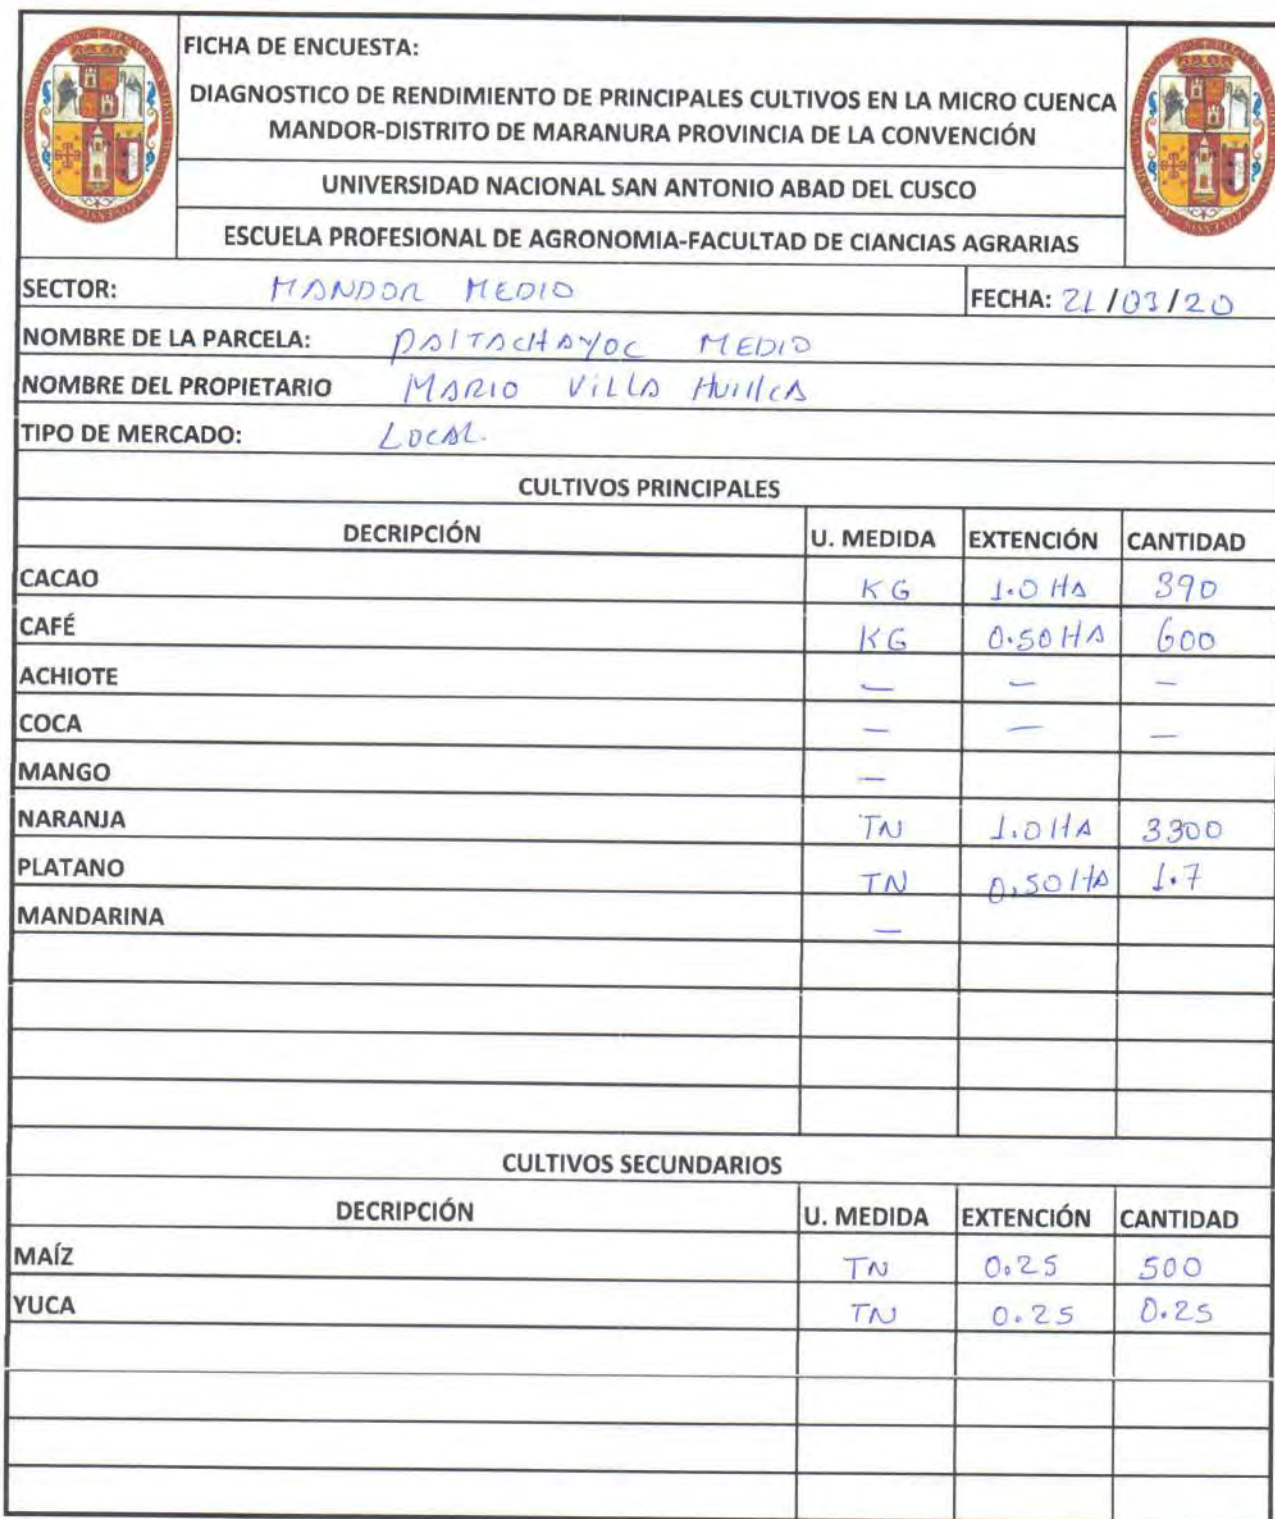 FICHA DE ENCUESTA:
DIAGNOSTICO DE RENDIMIENTO DE PRINCIPALES CULTIVOS EN LA MICRO CUENCA
MANDOR-DISTRITO DE MARANURA PROVINCIA DE LA CONVENCIÓN
UNIVERSIDAD NACIONAL SAN ANTONIO ABAD DEL CUSCO
ESCUELA PROFESIONAL DE AGRONOMIA-FACULTAD DE CIANCIAS AGRARIAS
SECTOR: MANDOR MEDIO FECHA: 21/03/20
NOMBRE DE LA PARCELA: PALTACHAYOC MEDIO
NOMBRE DEL PROPIETARIO MARIO VILLA HUILLCA
TIPO DE MERCADO: LOCAL.
CULTIVOS PRINCIPALES
DECRIPCIÓN U. MEDIDA EXTENCIÓN CANTIDAD
CACAO KG 1.0 HA 390
CAFÉ KG 0.50 HA 600
ACHIOTE — — —
COCA — — —
MANGO —
NARANJA TN 1.0 HA 3300
PLATANO TN 0,50 HA 1.7
MANDARINA —
CULTIVOS SECUNDARIOS
DECRIPCIÓN U. MEDIDA EXTENCIÓN CANTIDAD
MAÍZ TN 0.25 500
YUCA TN 0.25 0.25